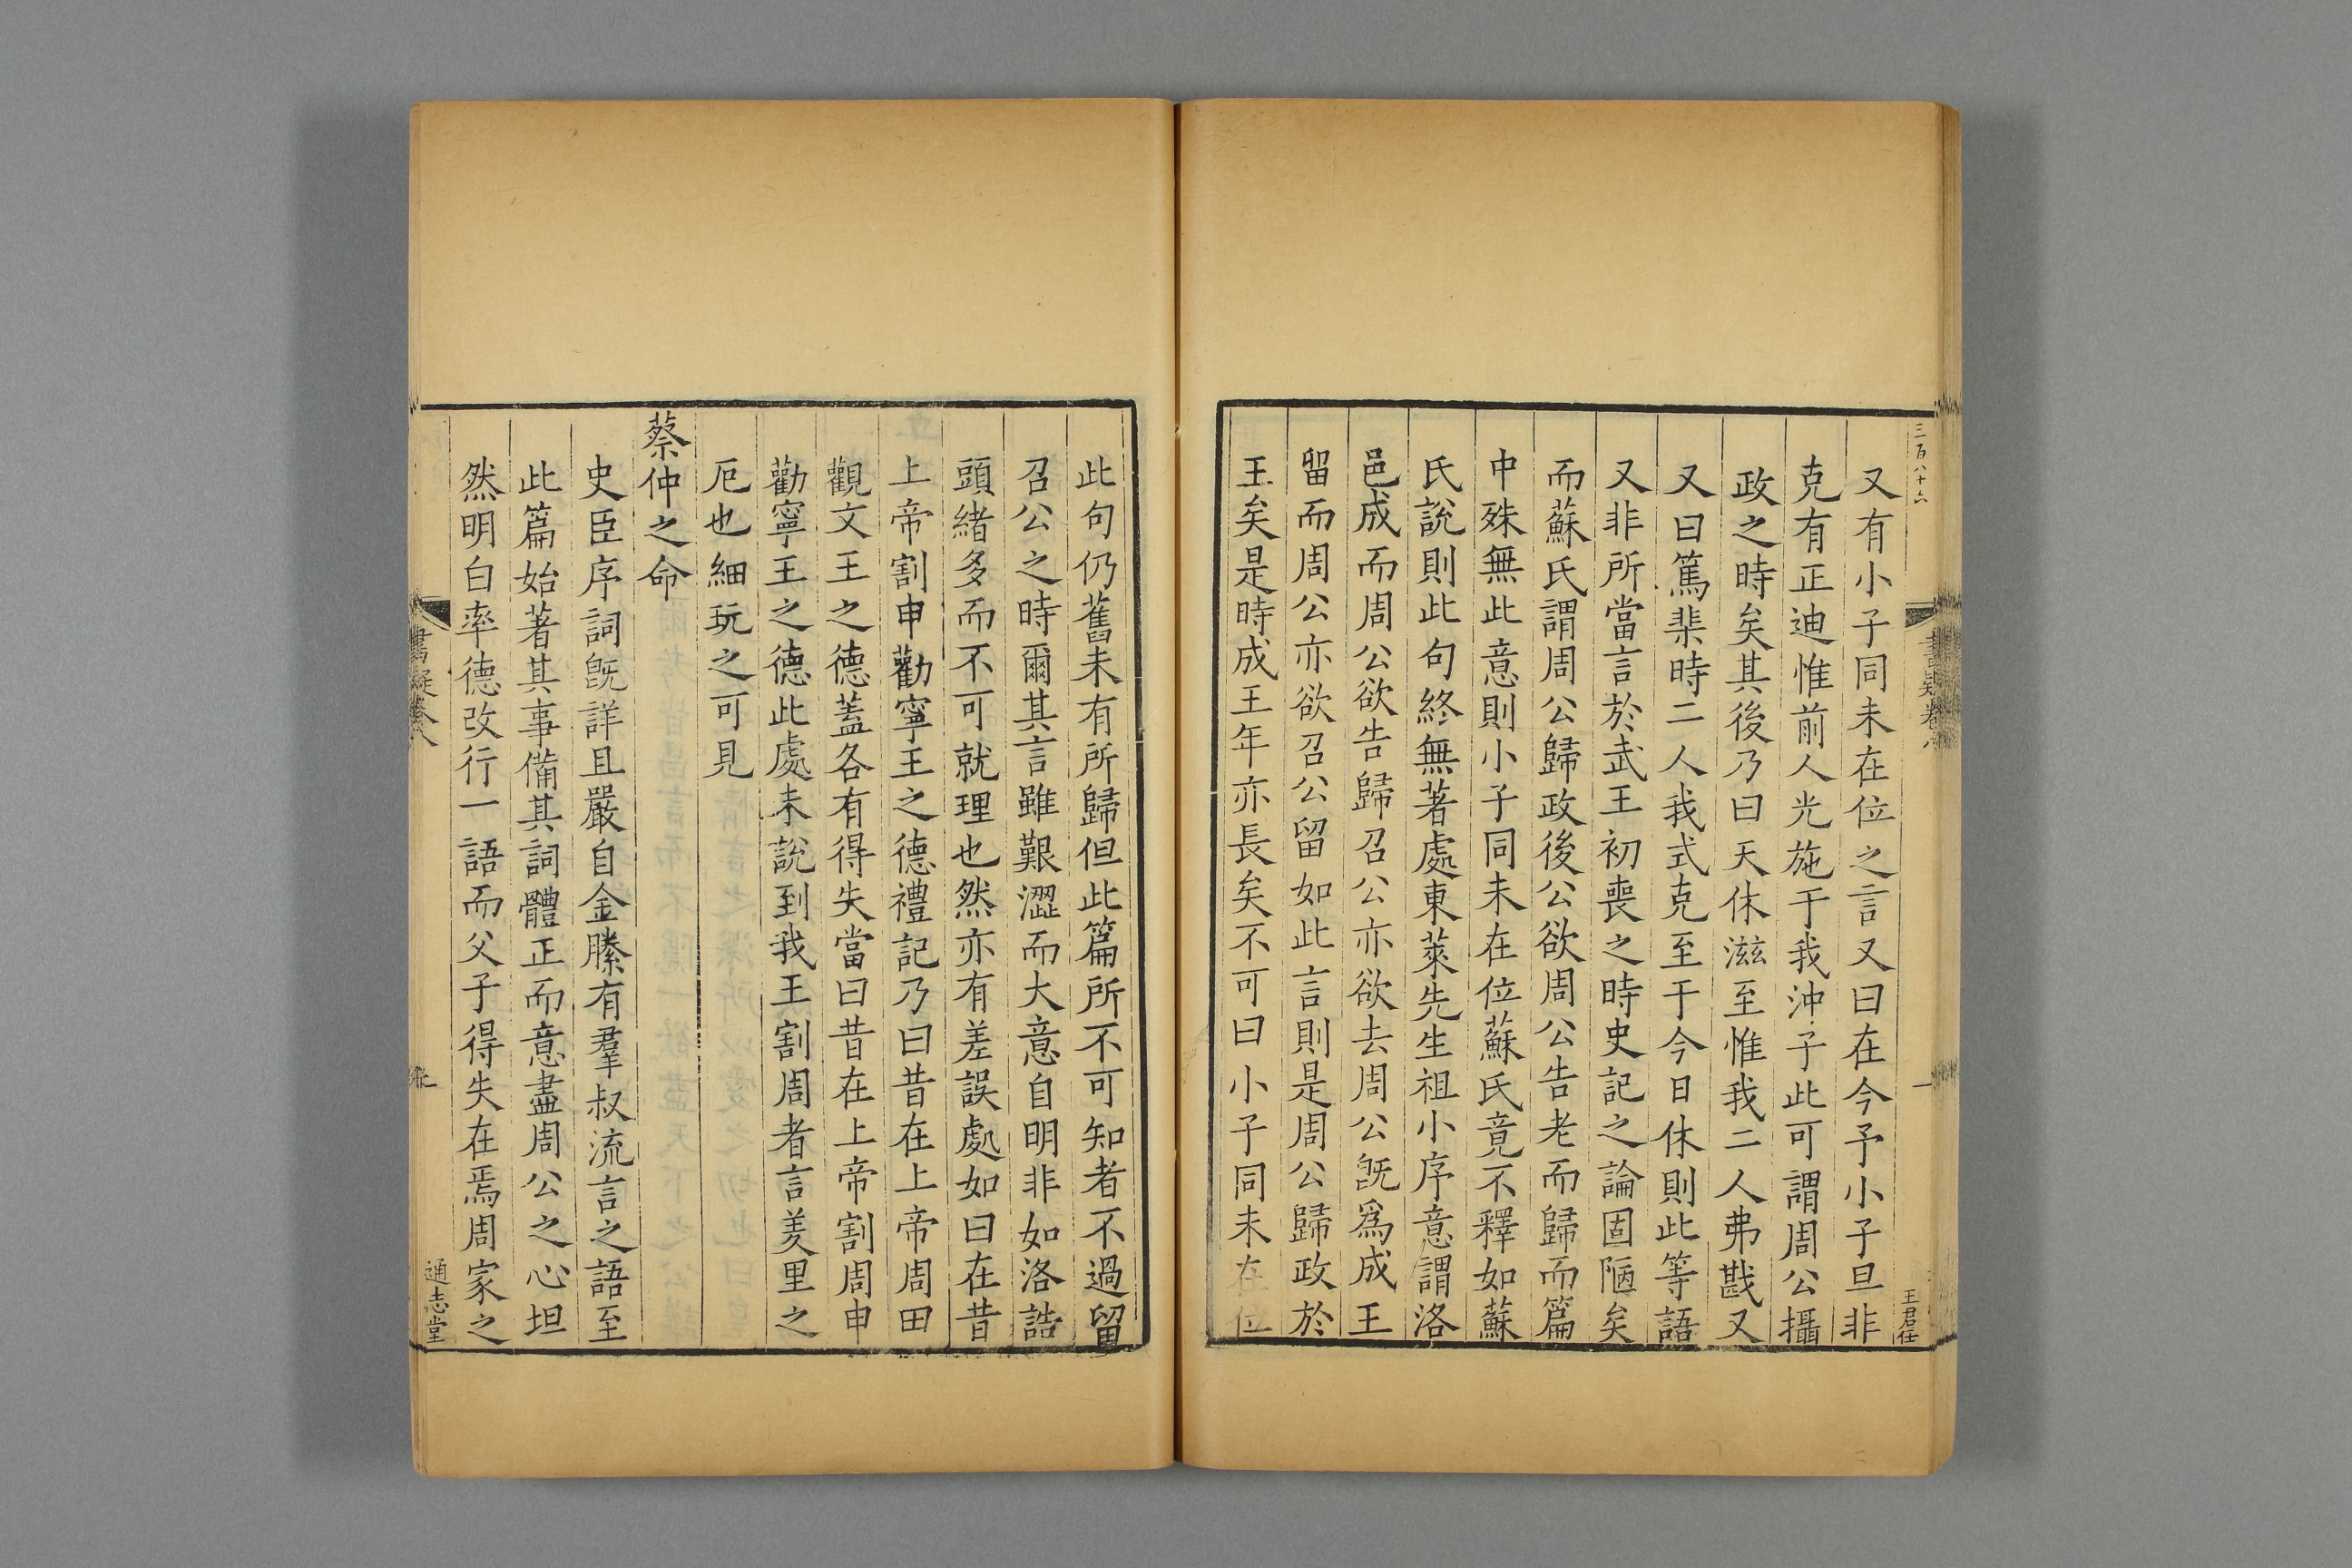 三百八十六
書疑卷八
一
王君任
又有小子同未在位之言又曰在今予小子旦非
克有正迪惟前人光施于我沖子此可謂周公攝
政之時矣其後乃曰天休滋至惟我二人弗戡又
又曰篤棐時二人我式克至于今日休則此等語
又非所當言於武王初喪之時史記之論固陋矣
而蘇氏謂周公歸政後公欲周公告老而歸而篇
中殊無此意則小子同未在位蘇氏竟不釋如蘇
氏說則此句終無著處東萊先生祖小序意謂洛
邑成而周公欲告歸召公亦欲去周公旣爲成王
留而周公亦欲召公留如此言則是周公歸政於
王矣是時成王年亦長矣不可曰小子同未在位
此句仍舊未有所歸但此篇所不可知者不過留
召公之時爾其言雖艱澀而大意自明非如洛誥
頭緒多而不可就理也然亦有差誤處如曰在昔
上帝割申勸寧王之德禮記乃曰昔在上帝周田
觀文王之德蓋各有得失當曰昔在上帝割周申
勸寧王之德此處未說到我王割周者言羑里之
厄也細玩之可見
蔡仲之命
史臣序詞旣詳且嚴自金縢有羣叔流言之語至
此篇始著其事備其詞體正而意盡周公之心坦
然明白率德改行一語而父子得失在焉周家之
書疑卷八
通志堂